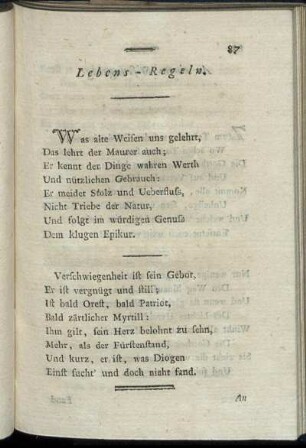 87
Lebens-Regeln.
Was alte Weisen uns gelehrt,
Das lehrt der Maurer auch;
Er kennt der Dinge wahren Werth
Und nützlichen Gebrauch:
Er meidet Stolz und Ueberfluſs,
Nicht Triebe der Natur,
Und folgt im würdigen Genuſs
Dem klugen Epikur.
Verschwiegenheit ist sein Gebot,
Er ist vergnügt und still;
Ist bald Orest, bald Patriot,
Bald zärtlicher Myrtill:
Ihn gilt, sein Herz belohnt zu sehn,
Mehr, als der Fürstenstand,
Und kurz, er ist, was Diogen
Einst sucht' und doch nicht fand.
An